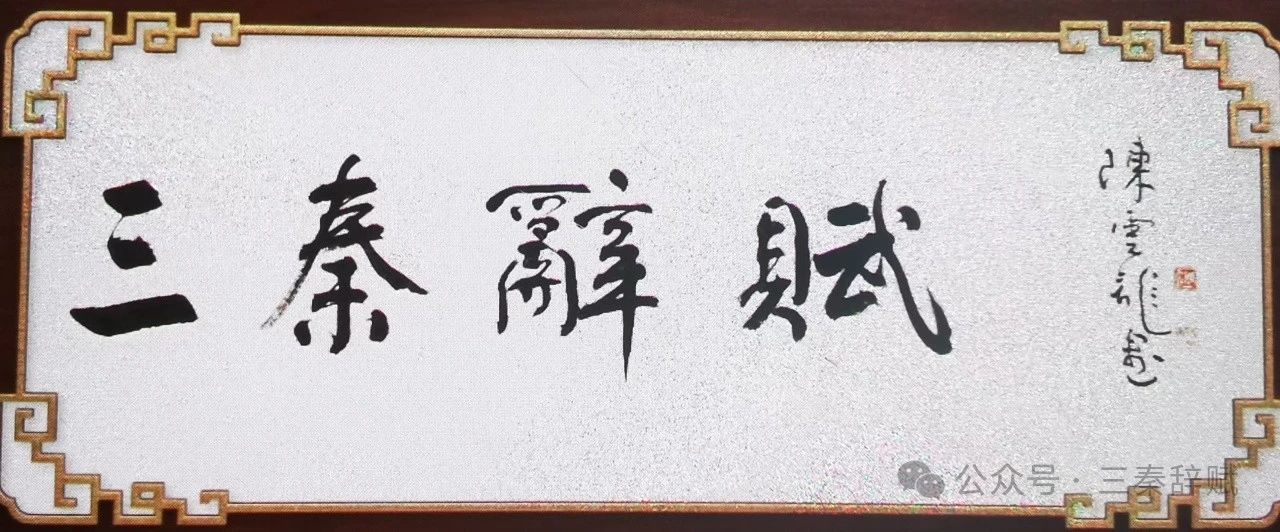 三秦辭賦
陳雲龍
公众号 · 三秦辞赋